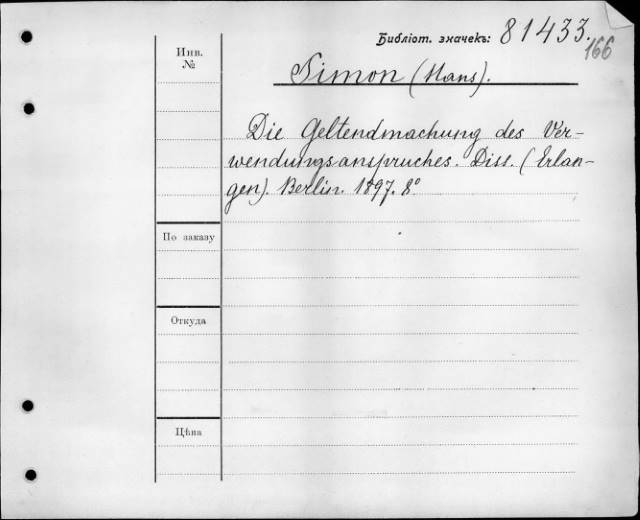 Библіот. значекъ: 81433.
166
Инв.
№
Simon (Hans).
Die Geltendmachung des Ver-
wendungsanspruches. Diss. (Erlan-
gen). Berlin. 1897. 8°
По заказу
Откуда
Цѣна